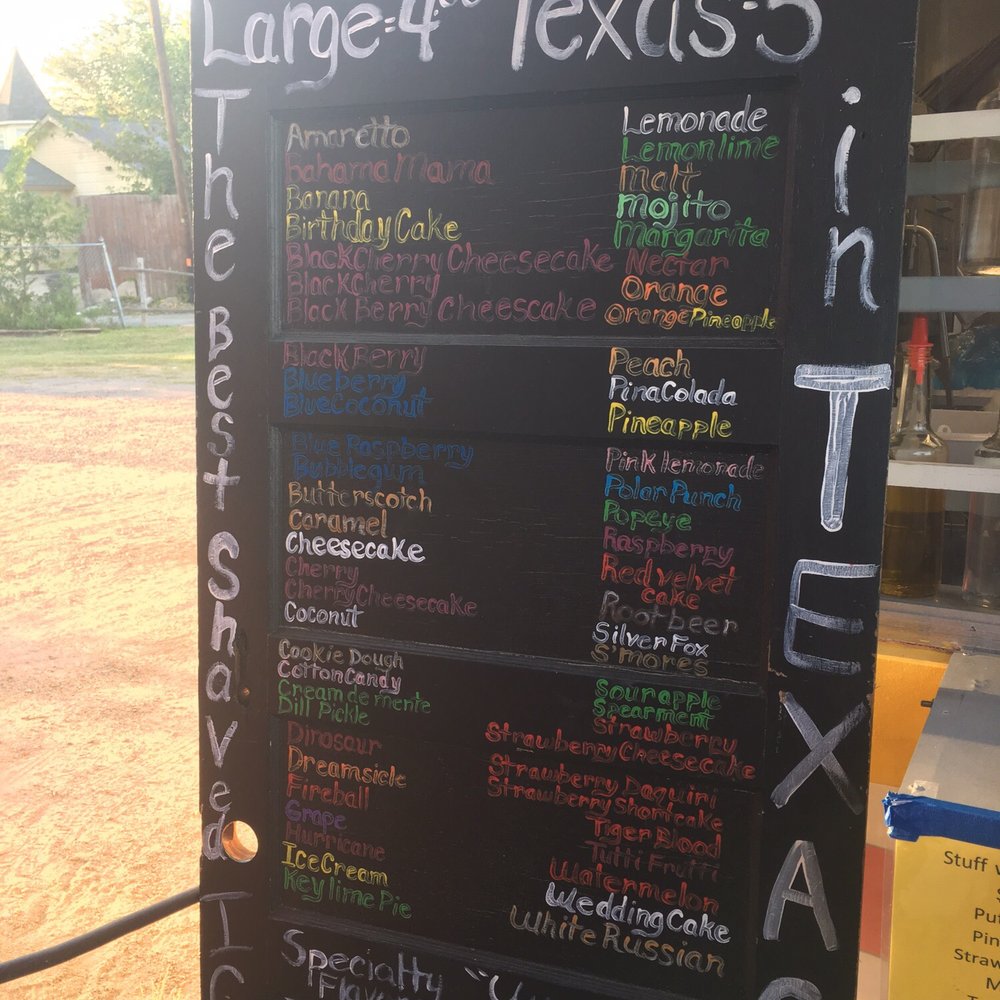 Large=4.00 Texas=5
The Best Shaved IC
in TEXAS
Amaretto
Bahama Mama
Banana
Birthday Cake
Black Cherry Cheesecake
Black Cherry
Black Berry Cheescake
Black Berry
Blueberry
Blue Coconut
Blue Raspberry
Bubblegum
Butterscotch
Caramel
Cheesecake
Cherry
Cherry Cheesecake
Coconut
Cookie Dough
Cotton Candy
Cream de mente
Dill Pickle
Dinosaur
Dreamsicle
Fireball
Grape
Hurricane
Ice Cream
Key lime Pie
Lemonade
Lemon lime
Malt
Mojito
Margarita
Nectar
Orange
Orange Pineapple
Peach
Pina Colada
Pineapple
Pink lemonade
Polar Punch
Popeye
Raspberry
Red velvet
cake
Root beer
Silver Fox
S'mores
Sour apple
Spearment
Strawberry
Strawberry Cheesecake
Strawberry Daquiri
Strawberry Shortcake
Tiger Blood
Tutti Frutti
Watermelon
Wedding Cake
White Russian
Specialty
Flavor
Stuff
Pin
Straw